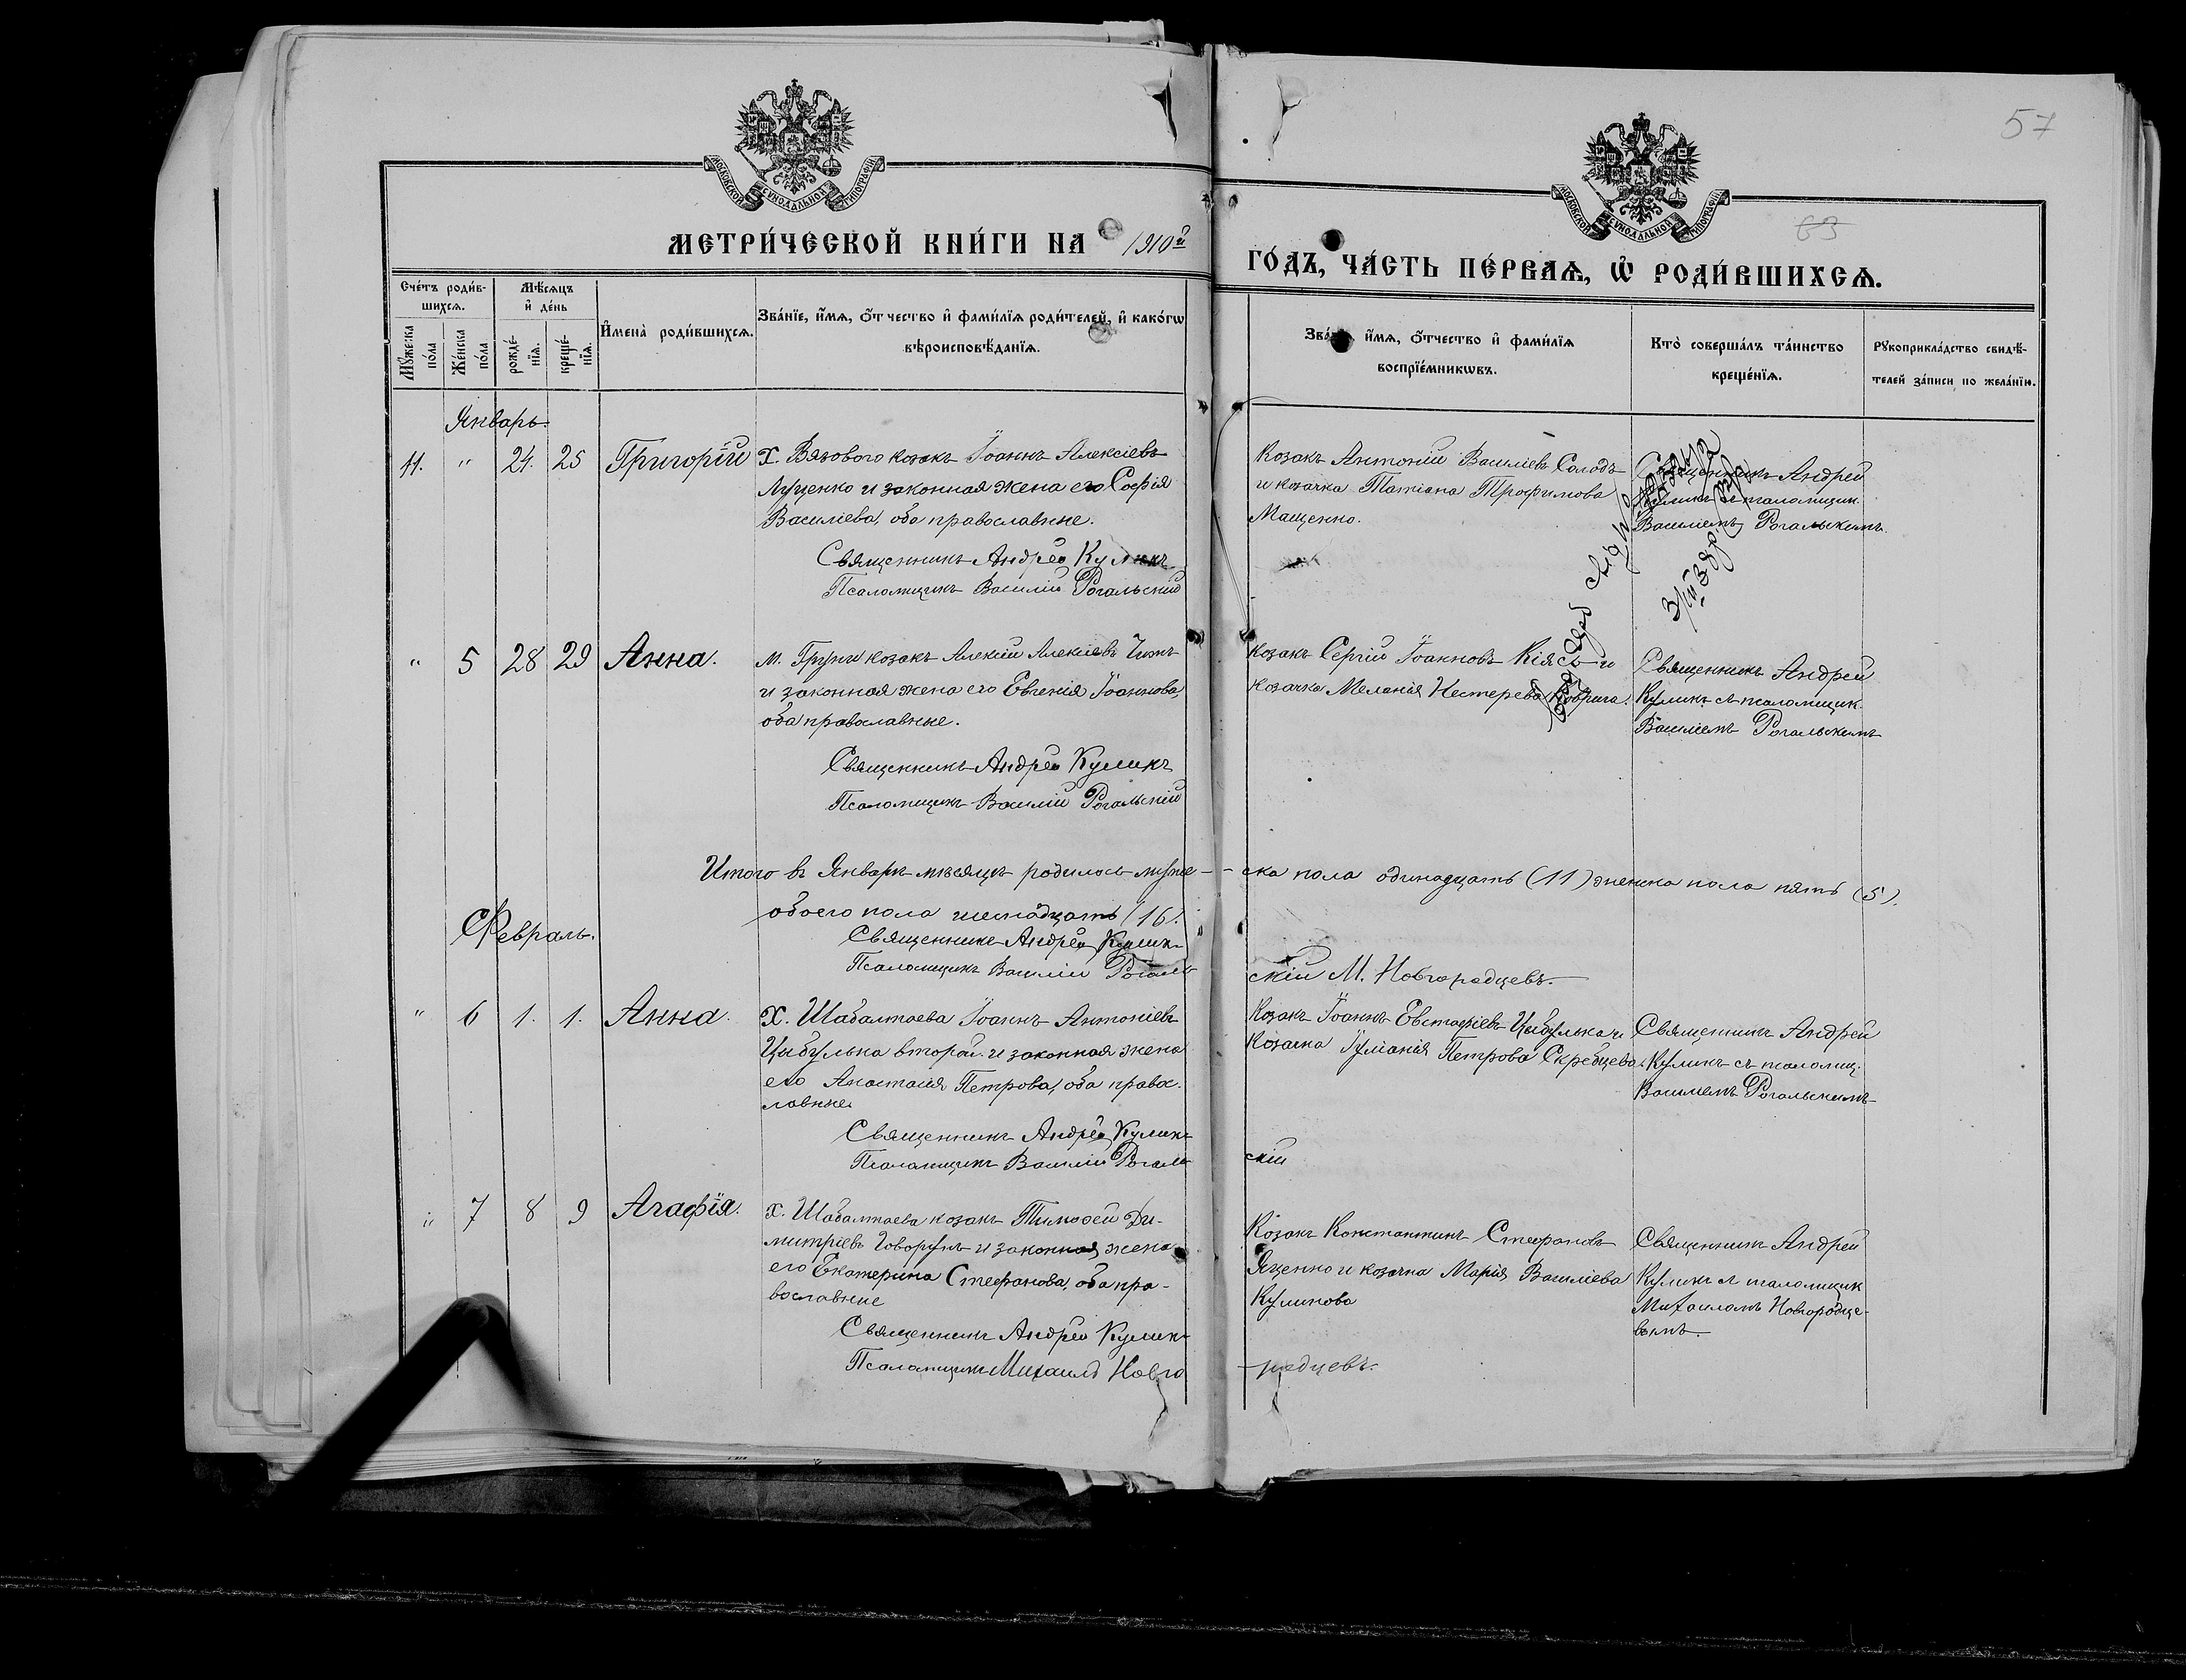 57
МОСКОВСКОЙ СѴНОДАЛЬНОЙ ТИПОГРАФІИ
МОСКОВСКОЙ СѴНОДАЛЬНОЙ ТИПОГРАФІИ
63
МЕТРИ́ЧЕСКОЙ КНИ́ГИ НА 1910й
ГО́ДЪ, ЧА́СТЬ ПЕ́РВАѦ, Ѡ҆ РОДИ́ВШИХСѦ.
Сче́тъ роди́в-
шихсѧ.
Мꙋ́жеска
по́ла
Же́нска
по́ла
Мѣ́сѧцъ
и҆ де́нь
рожде́-
нїѧ.
креще́-
нїѧ.
И҆мена̀ роди́вшихсѧ.
Зва́нїе, и҆́мѧ, ѻ҆́тчество и҆ фами́лїѧ роди́телей, и҆ како́гѡ
вѣроисповѣ́данїѧ.
и҆́мѧ, ѻ҆́тчество и҆ фами́лїѧ
воспрїе́мникѡвъ.
Кто̀ соверша́лъ та́инство
креще́нїѧ.
Рꙋкоприкла́дство свидѣ́-
телей за́писи по жела́нїю.
Январь.
11. " 24. 25 Григорій
Х. Вязового козакъ Іоаннъ Алексіевъ
Луценко и законная жена его Софія
Василіева, оба православные.
Священникъ Андрей Куликъ
Псаломщикъ Василій Рогальскій
Козакъ Антоній Василіевъ Солодъ
и козачка Татіана Трофимова
Мащенко.
Священникъ Андрей
Куликъ съ псаломщик.
Василіемъ Рогальскимъ.
" 5 28 29 Анна.
м. Груни козакъ Алексій Алексіевъ Чижъ
и законная жена его Евгенія Іоаннова,
оба православные.
Священникъ Андрей Куликъ
Псаломщикъ Василій Рогальскій
Козакъ Сергій Іоанновъ Кіясъ и
козачка Меланія Нестерева
Священникъ Андрей
Куликъ съ псаломщик.
Василіемъ Рогальскимъ
Итого въ Январѣ мѣсяцѣ родилось муже-ска пола одинадцать (11) женска пола пять (5).
обоего пола шестнадцать (16).
Священникъ Андрей Куликъ
Псаломщикъ Василій Рогальскій М. Новгородцевъ.
Февраль.
" 6 1. 1. Анна.
Х. Шабалтаева Іоаннъ Антоніевъ
Цыбулька второй и законная жена
его Анастасія Петрова, оба правос-
лавные.
Священникъ Андрей Куликъ
Псаломщикъ Василій Рогальскій
Козакъ Іоаннъ Евстафіевъ Цыбулька и
Козачка Іуліанія Петрова Скребцева.
Священникъ Андрей
Куликъ съ псаломщ.
Василіемъ Рогальскимъ
" 7 8 9 Агафія.
Х. Шабалтаева козакъ Тимофей Ди-
митріевъ Говорунъ и законная жена
его Екатерина Стефанова, оба пра-
вославные
Священникъ Андрей Куликъ
Псаломщикъ Михаилъ Новго-родцевъ.
Козакъ Константинъ Стефановъ
Яценко и козачка Марія Василіева
Куликова
Священникъ Андрей
Куликъ съ псаломщик
Михаиломъ Новгородце-
вымъ.